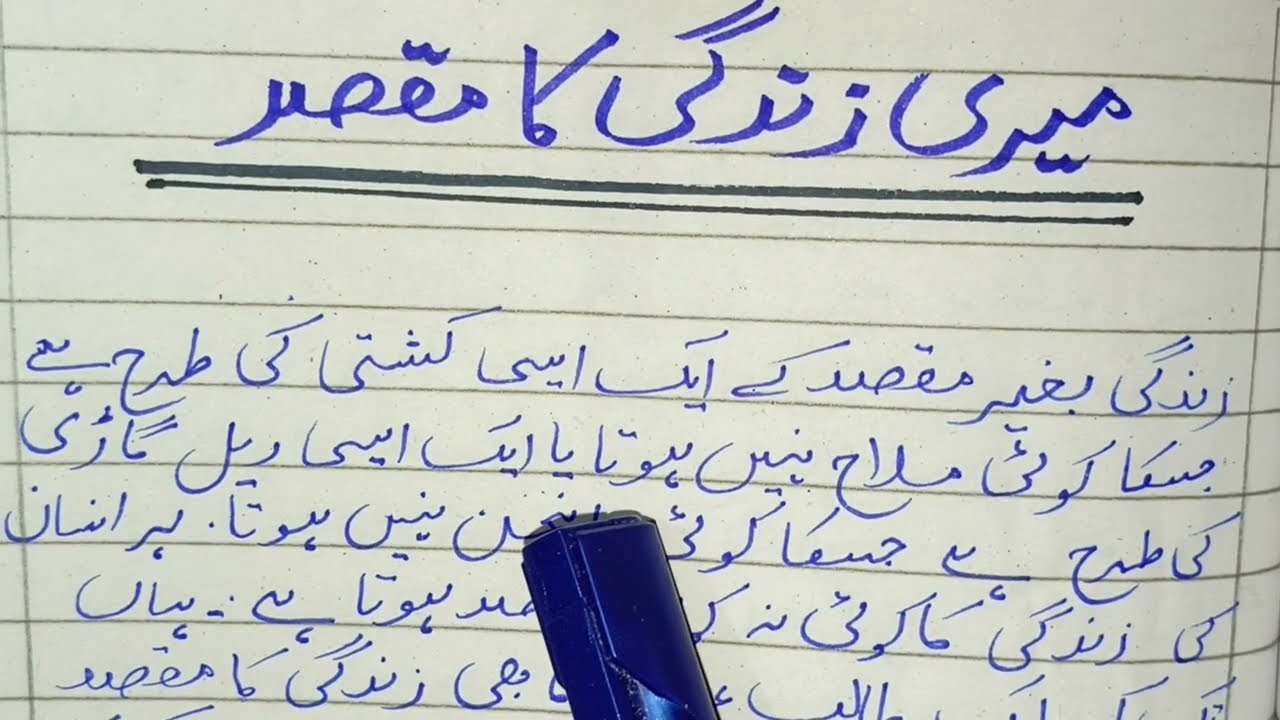 میری زندگی کا مقصد
زندگی بغیر مقصد کے ایک ایسی کشتی کی طرح ہے
جسکا کوئی ملاح نہیں ہوتا یا ایک ایسی ریل گاڑی
کی طرح ہے جسکا کوئی انجن نہیں ہوتا۔ ہر انسان
کی زندگی کا کوئی نہ ہوتا ہے۔ یہاں
بھی زندگی کا مقصد